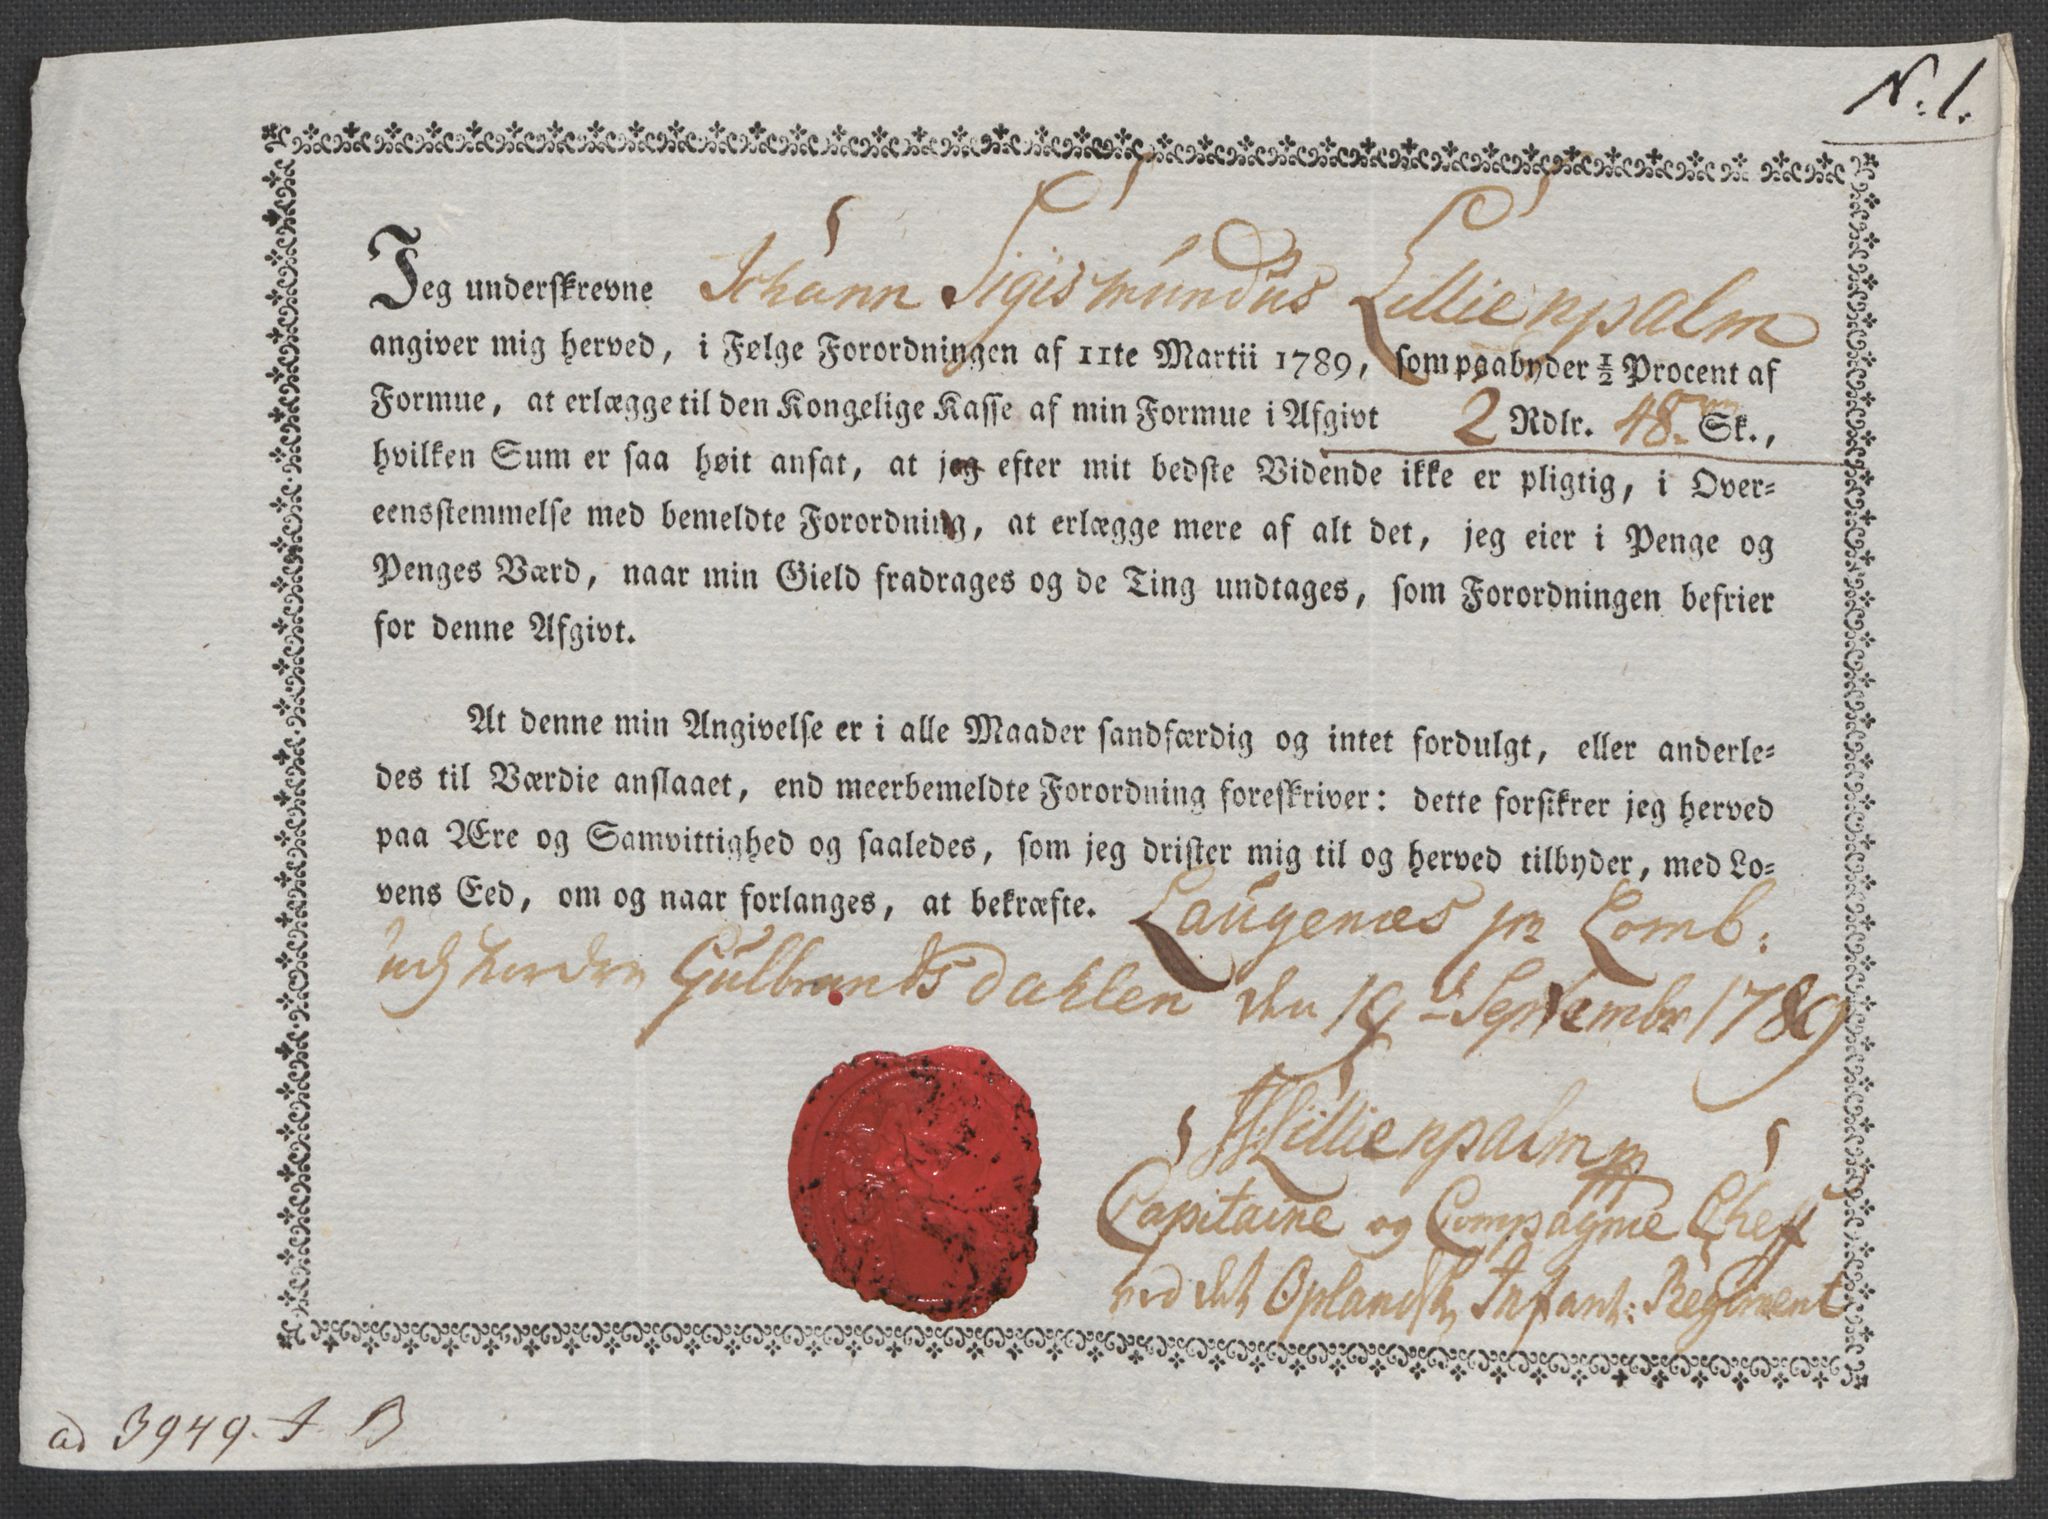 N. 1.
Jeg underskrevne Johann Sigismundus Lillienpalm
angiver mig herved, i Følge Forordningen af 11te Martii 1789, som paabyder ½ Procent af
Formue, at erlægge til den Kongelige Kasse af min Formue i Afgivt 2 Rdlr. 48 Sk.,
hvilken Sum er saa høit ansat, at jeg efter mit bedste Vidende ikke er pligtig, i Over=
eensstemmelse med bemeldte Forordning, at erlægge mere af alt det, jeg eier i Penge og
Penges Værd, naar min Gield fradrages og de Ting undtages, som Forordningen befrier
for denne Afgivt.
At denne min Angivelse er i alle Maader sandfærdig og intet fordulgt, eller anderle=
des til Værdie anslaaet, end meerbemeldte Forordning foreskriver: dette forsikrer jeg herved
paa Ære og Samvittighed og saaledes, som jeg drister mig til og herved tilbyder, med Lo=
vens Eed, om og naar forlanges, at bekræfte. Laugenæs Lomb:
Gulbrandsdahlen den 19 Septembr 1789
Lillienpalm
Capitaine og Compagnie Cheff
ved det Oplandsk Infant: Regiment
ad 3949. B